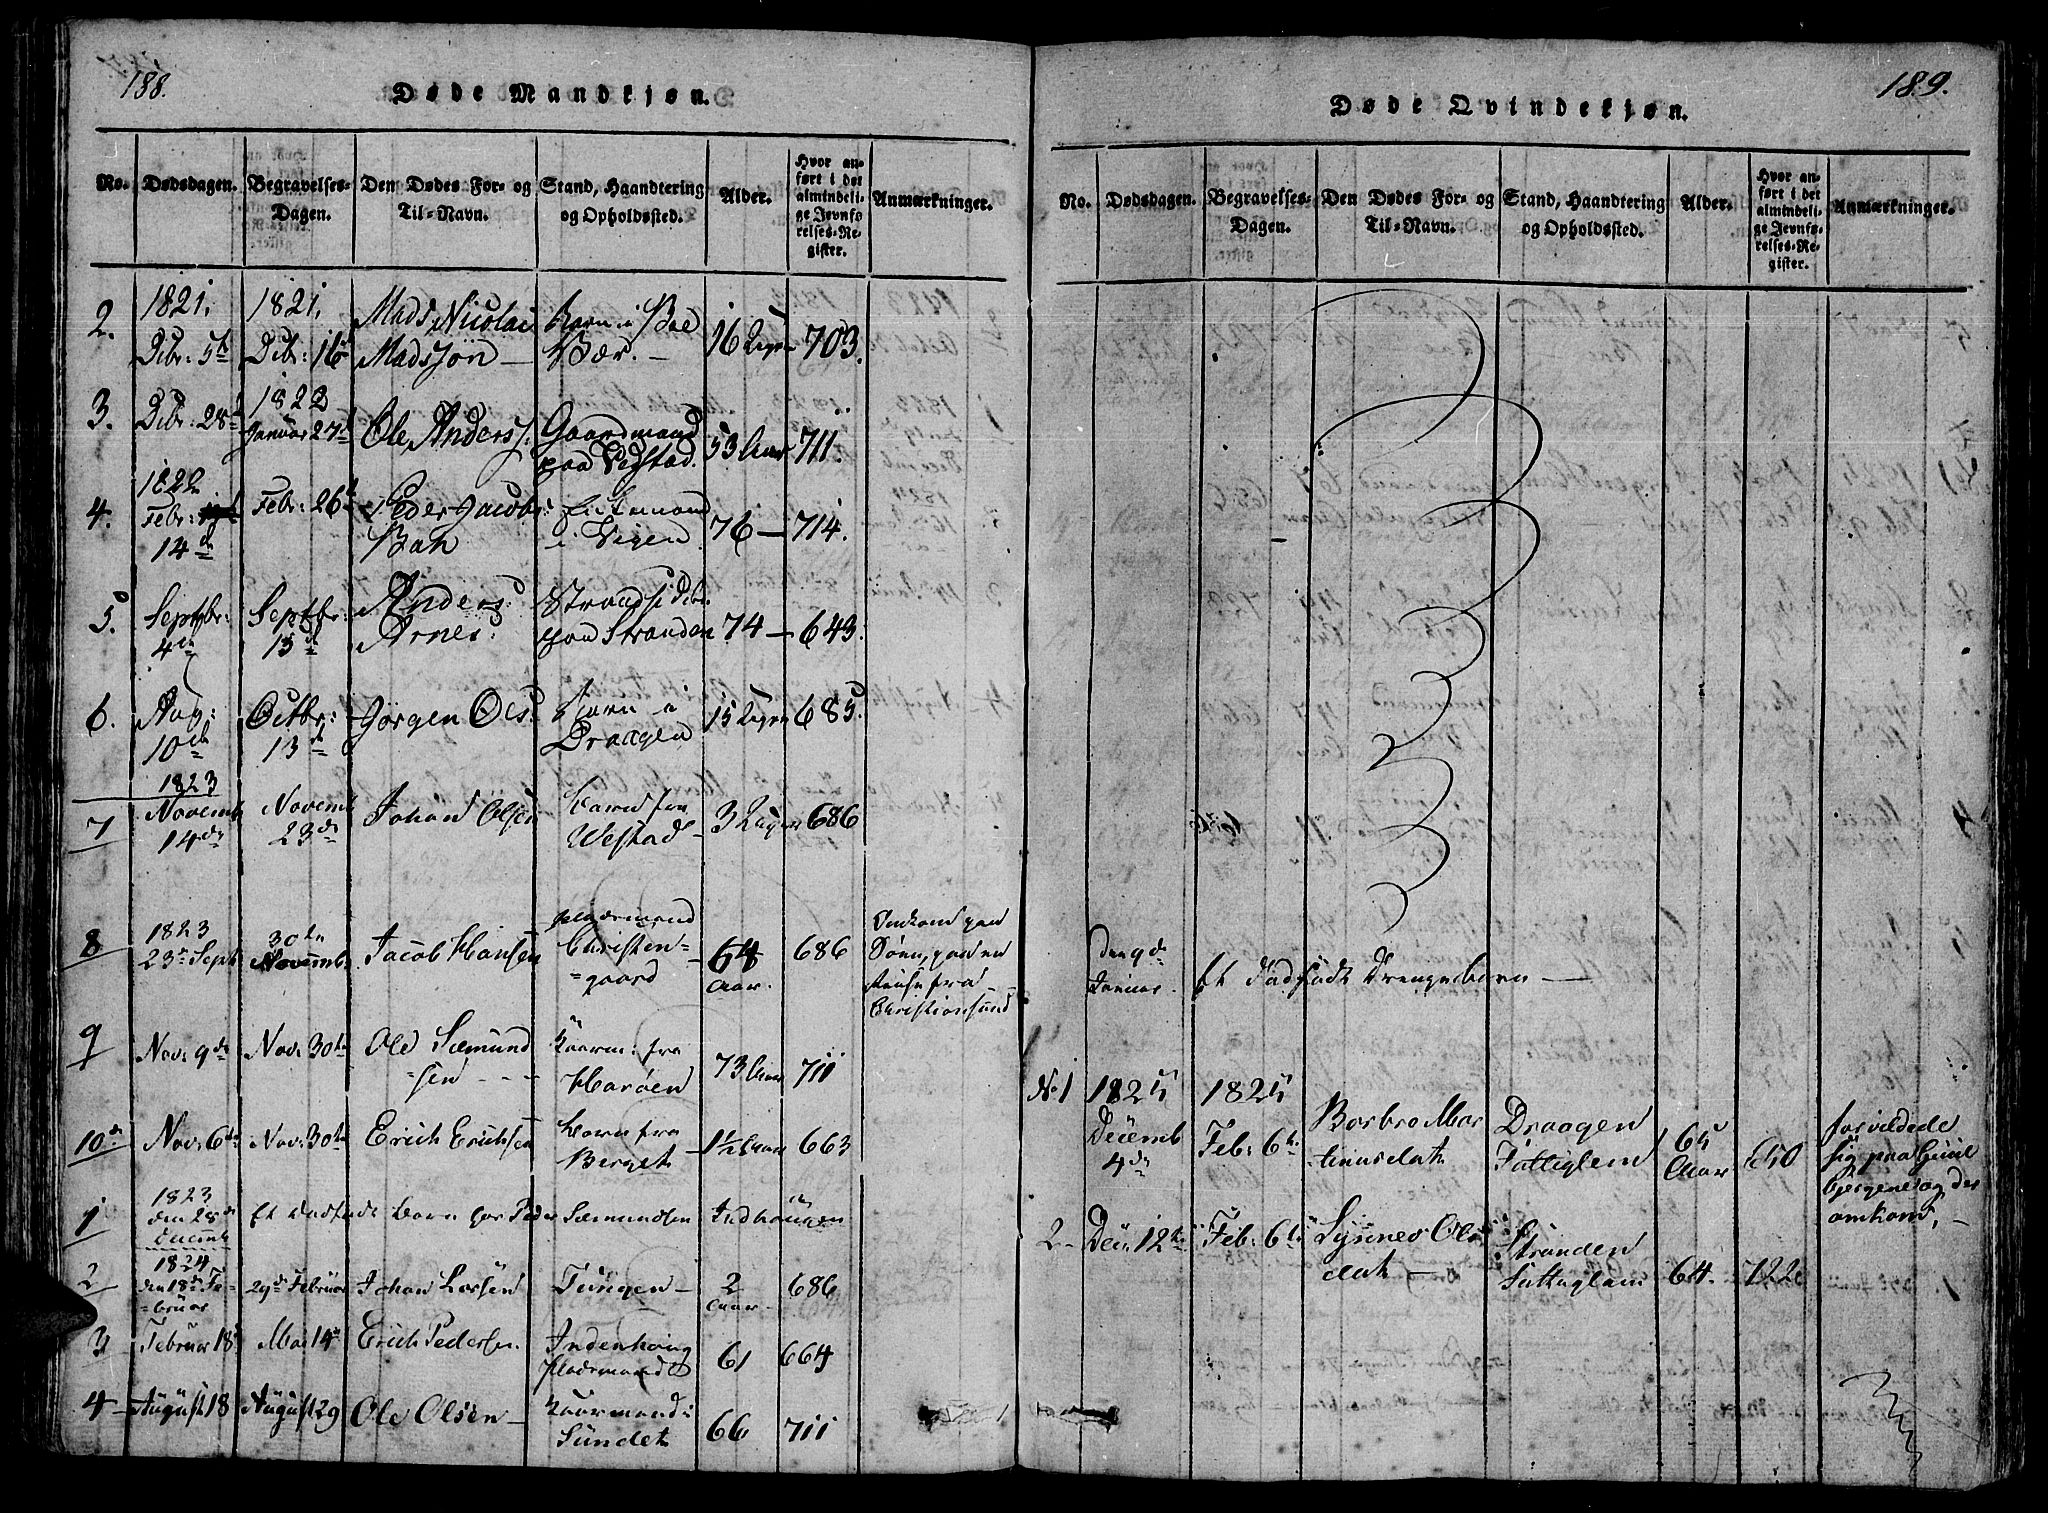 188.
Døde Mandkjøn.
No. Dødsdagen. Begravelses-Dagen. Den Dødes For- og Til-Navn. Stand, Haandtering og Opholdssted. Alder. Hvor anført i det almindelige Jevnførelses-Register. Anmærkninger.
2. 1821. Dcbr: 5te 1821. Dcbr: 16 Mads Nicolai Madssøn Barn i Bae 16 Uger 703.
3. Dcbr: 28 1822 Januar 27 Ole Anderss: Gaardmand paa Vestad. 53 Aar 711.
4. 1822 Febr: 14de Febr: 26 Peder Jacobs: Bah i Vigen 76 — 714.
5. Septbr: 4de Septbr: 13de Anders Arnes: Strandsidder paa Stranden 74 — 643.
6. Aug: 10de Octbr: 13de Jørgen Ols: Barn i Draagen 15 Uger 685.
7 1823 Novemb 14de Novemb 23de Johan Olsen Barn fra Westad 3 Uger 686
8 1823 23de Septb 30te Novemb Jacob Hansen Pladsmand Christengaard 64 Aar. 686 Omkom paa Søen, paa en Reise fra Christiansund
9 Nov: 9de Nov: 30te Ole Sæmundsen Kaarm: fra Harøen 73 Aar 711
10de Nov: 6te Nov: 30te Erich Erichsen Barn fra Berget 1½ Aar 663
1 1823 den 28de Decemb Et dødfødt Barn for Peder Sæmundsen Indhougen
2 1824 den 18de Februar 29de Februar Johan Larsen Tungen 2 Aar 686
3 Februar 18 Mai 14 Erich Pedersen. Indenhoug Pladsmand 61 664
4 August 18 August 29 Ole Olsen Kaarmand i Sundet 66 711
189.
Døde Qvindekjøn.
No. Dødsdagen. Begravelses-Dagen. Den Dødes For- og Til-Navn. Stand, Haandtering og Opholdssted. Alder. Hvor anført i det almindelige Jevnførelses-Register. Anmærkninger.
den 9de Januar. Et dødfødt Drengebarn
No 1 1825 Decemb 4de 1825 Feb: 6te Borbro Martinusdat Draagen Fattiglem 65 Aar 650 forvildede sig paa Guulbjergene og der omkom,
2 Dec: 12te Feb: 6te Olsdat Stranden Fattiglem 64. 722